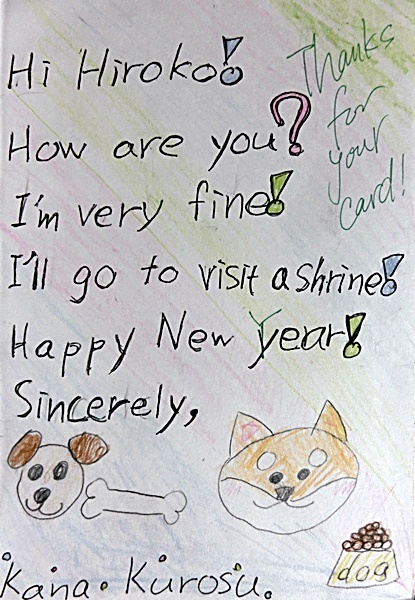 Hi Hiroko!
Thanks
for
your
card!
How are you?
I'm very fine!
I'll go to visit a shrine!
Happy New Year!
Sincerely,
dog
Kana. Kurosu.